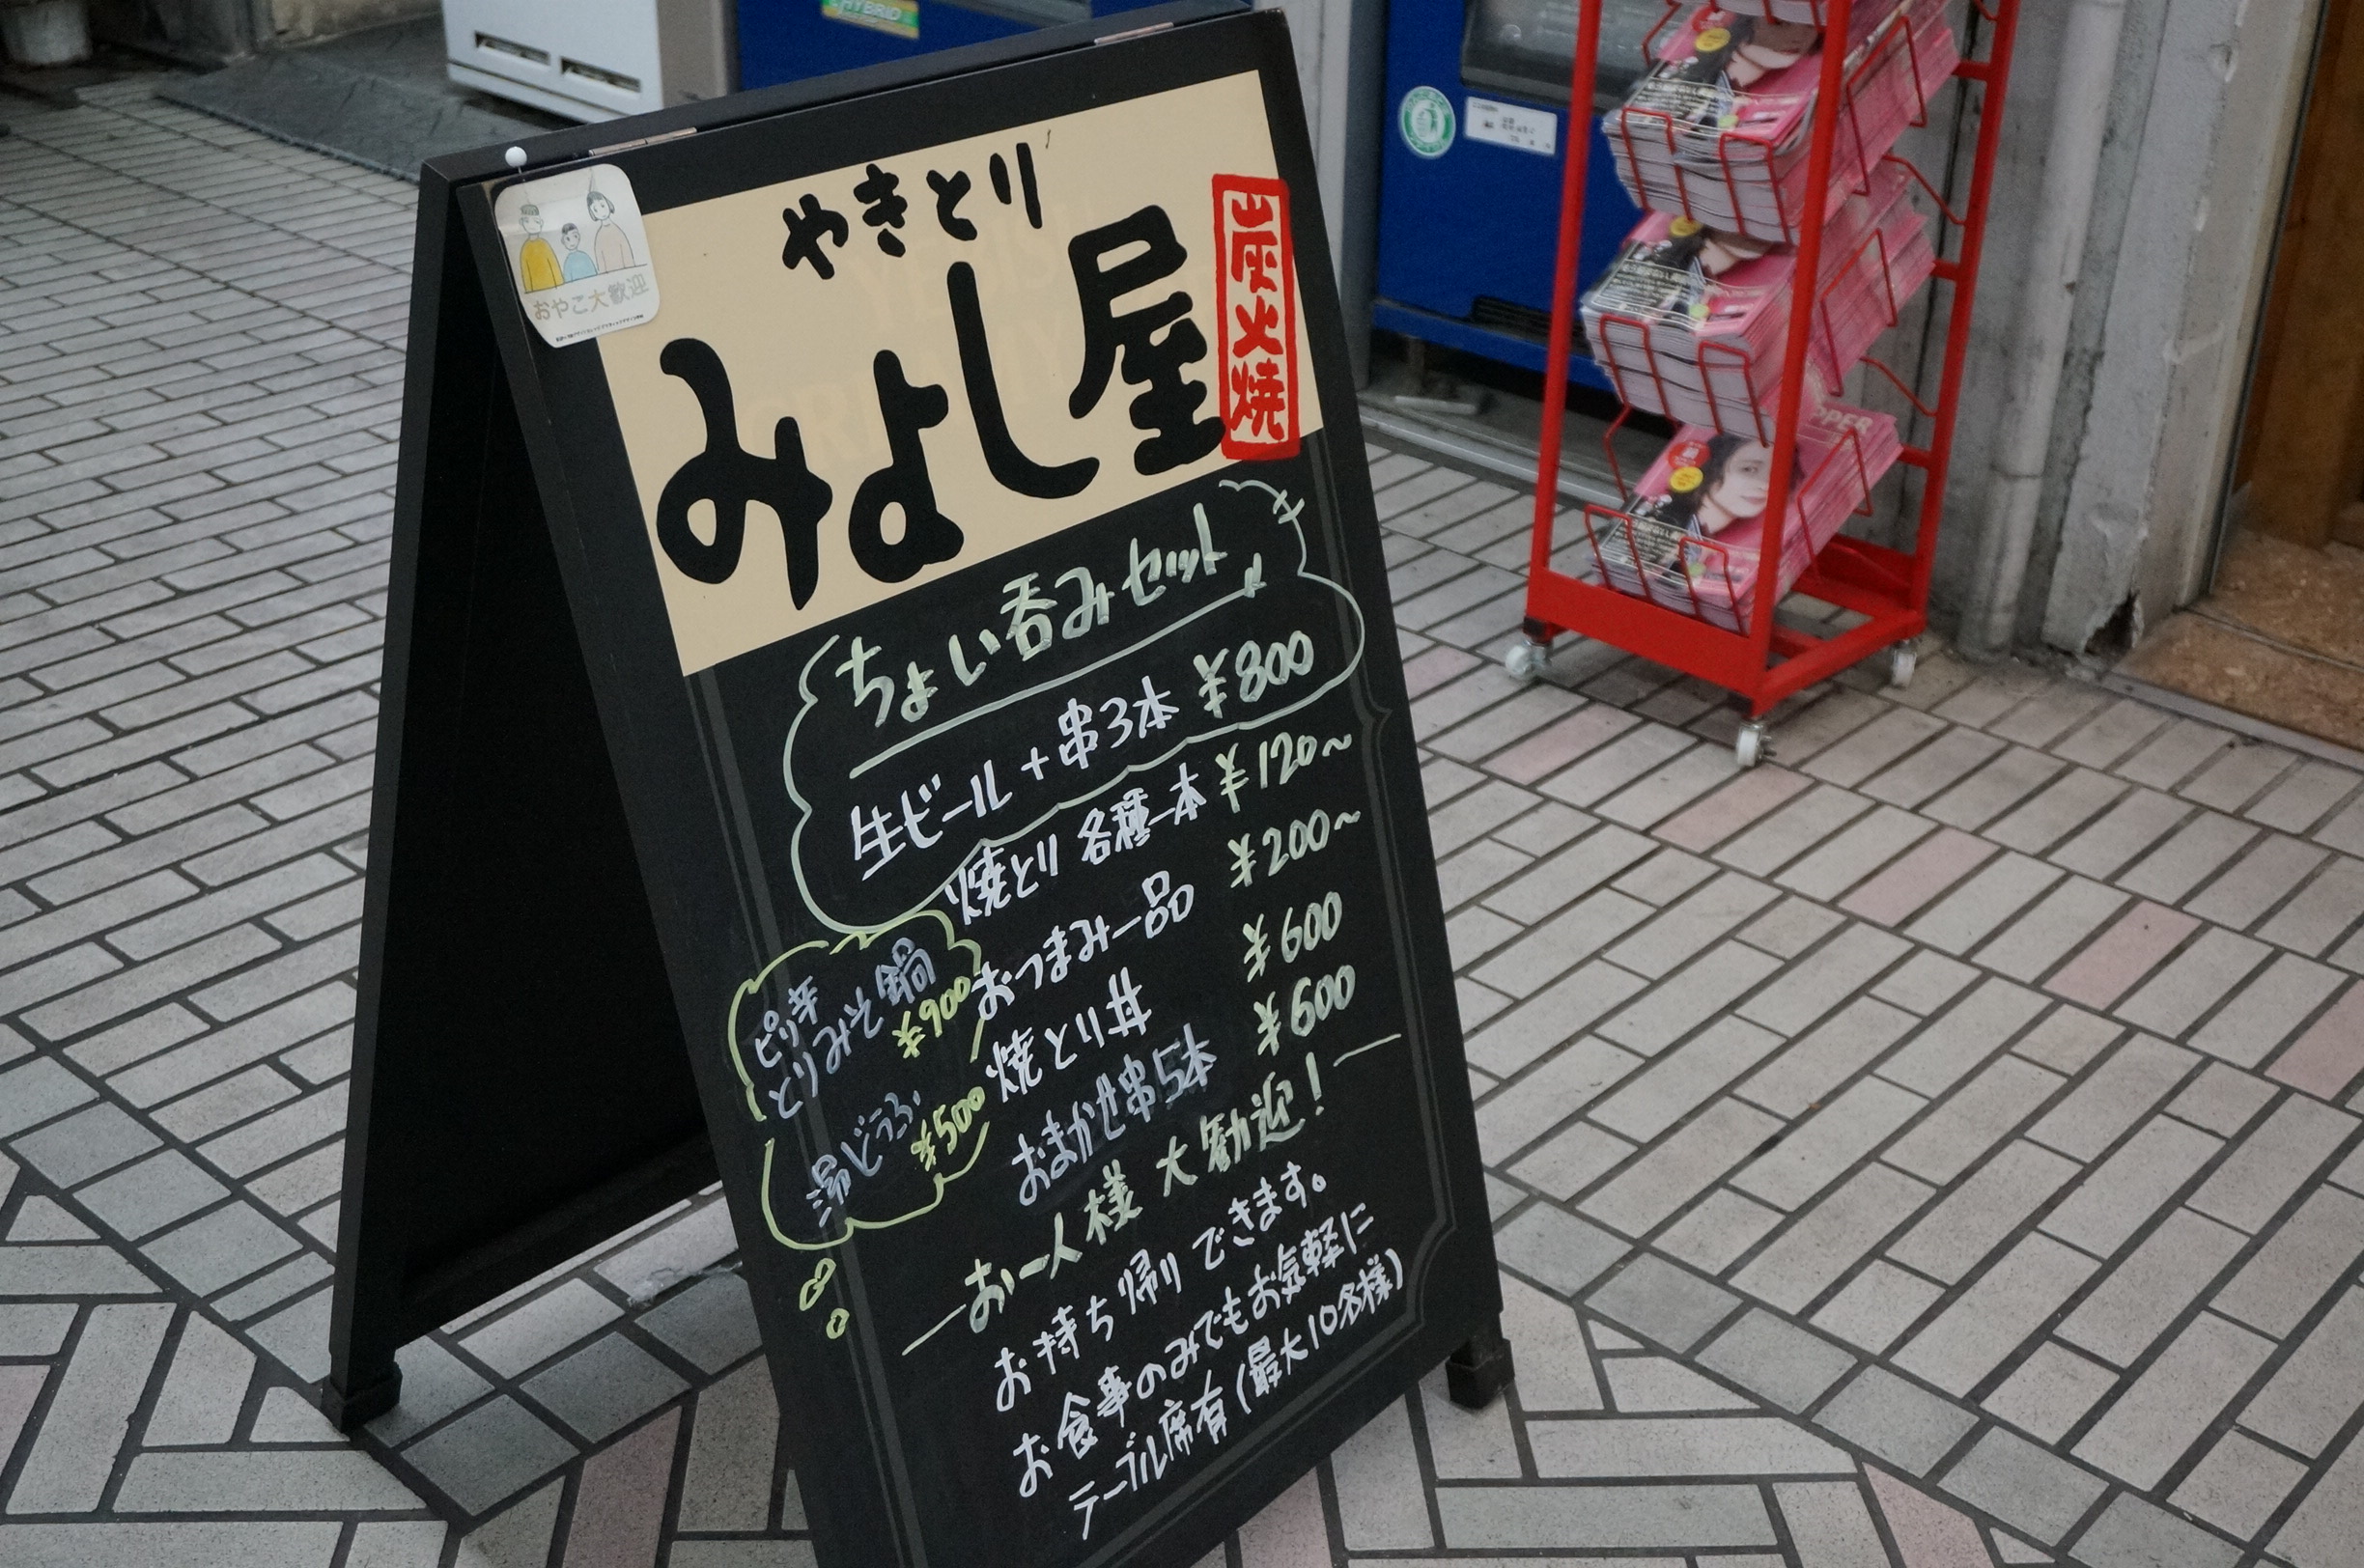 HYBRID
おやこ大歓迎
やきとり
みよし屋
炭火焼
ちょい呑みセット
生ビール + 串3本 ¥800
焼とり 各種一本 ¥120～
おつまみ一品 ¥200～
焼とり丼 ¥600
おまかせ串5本 ¥600
ピリ辛
とりみそ鍋
¥900
湯どうふ
¥500
お一人様 大歓迎!
お持ち帰りできます。
お食事のみでもお気軽に
テーブル席有(最大10名様)
PPER